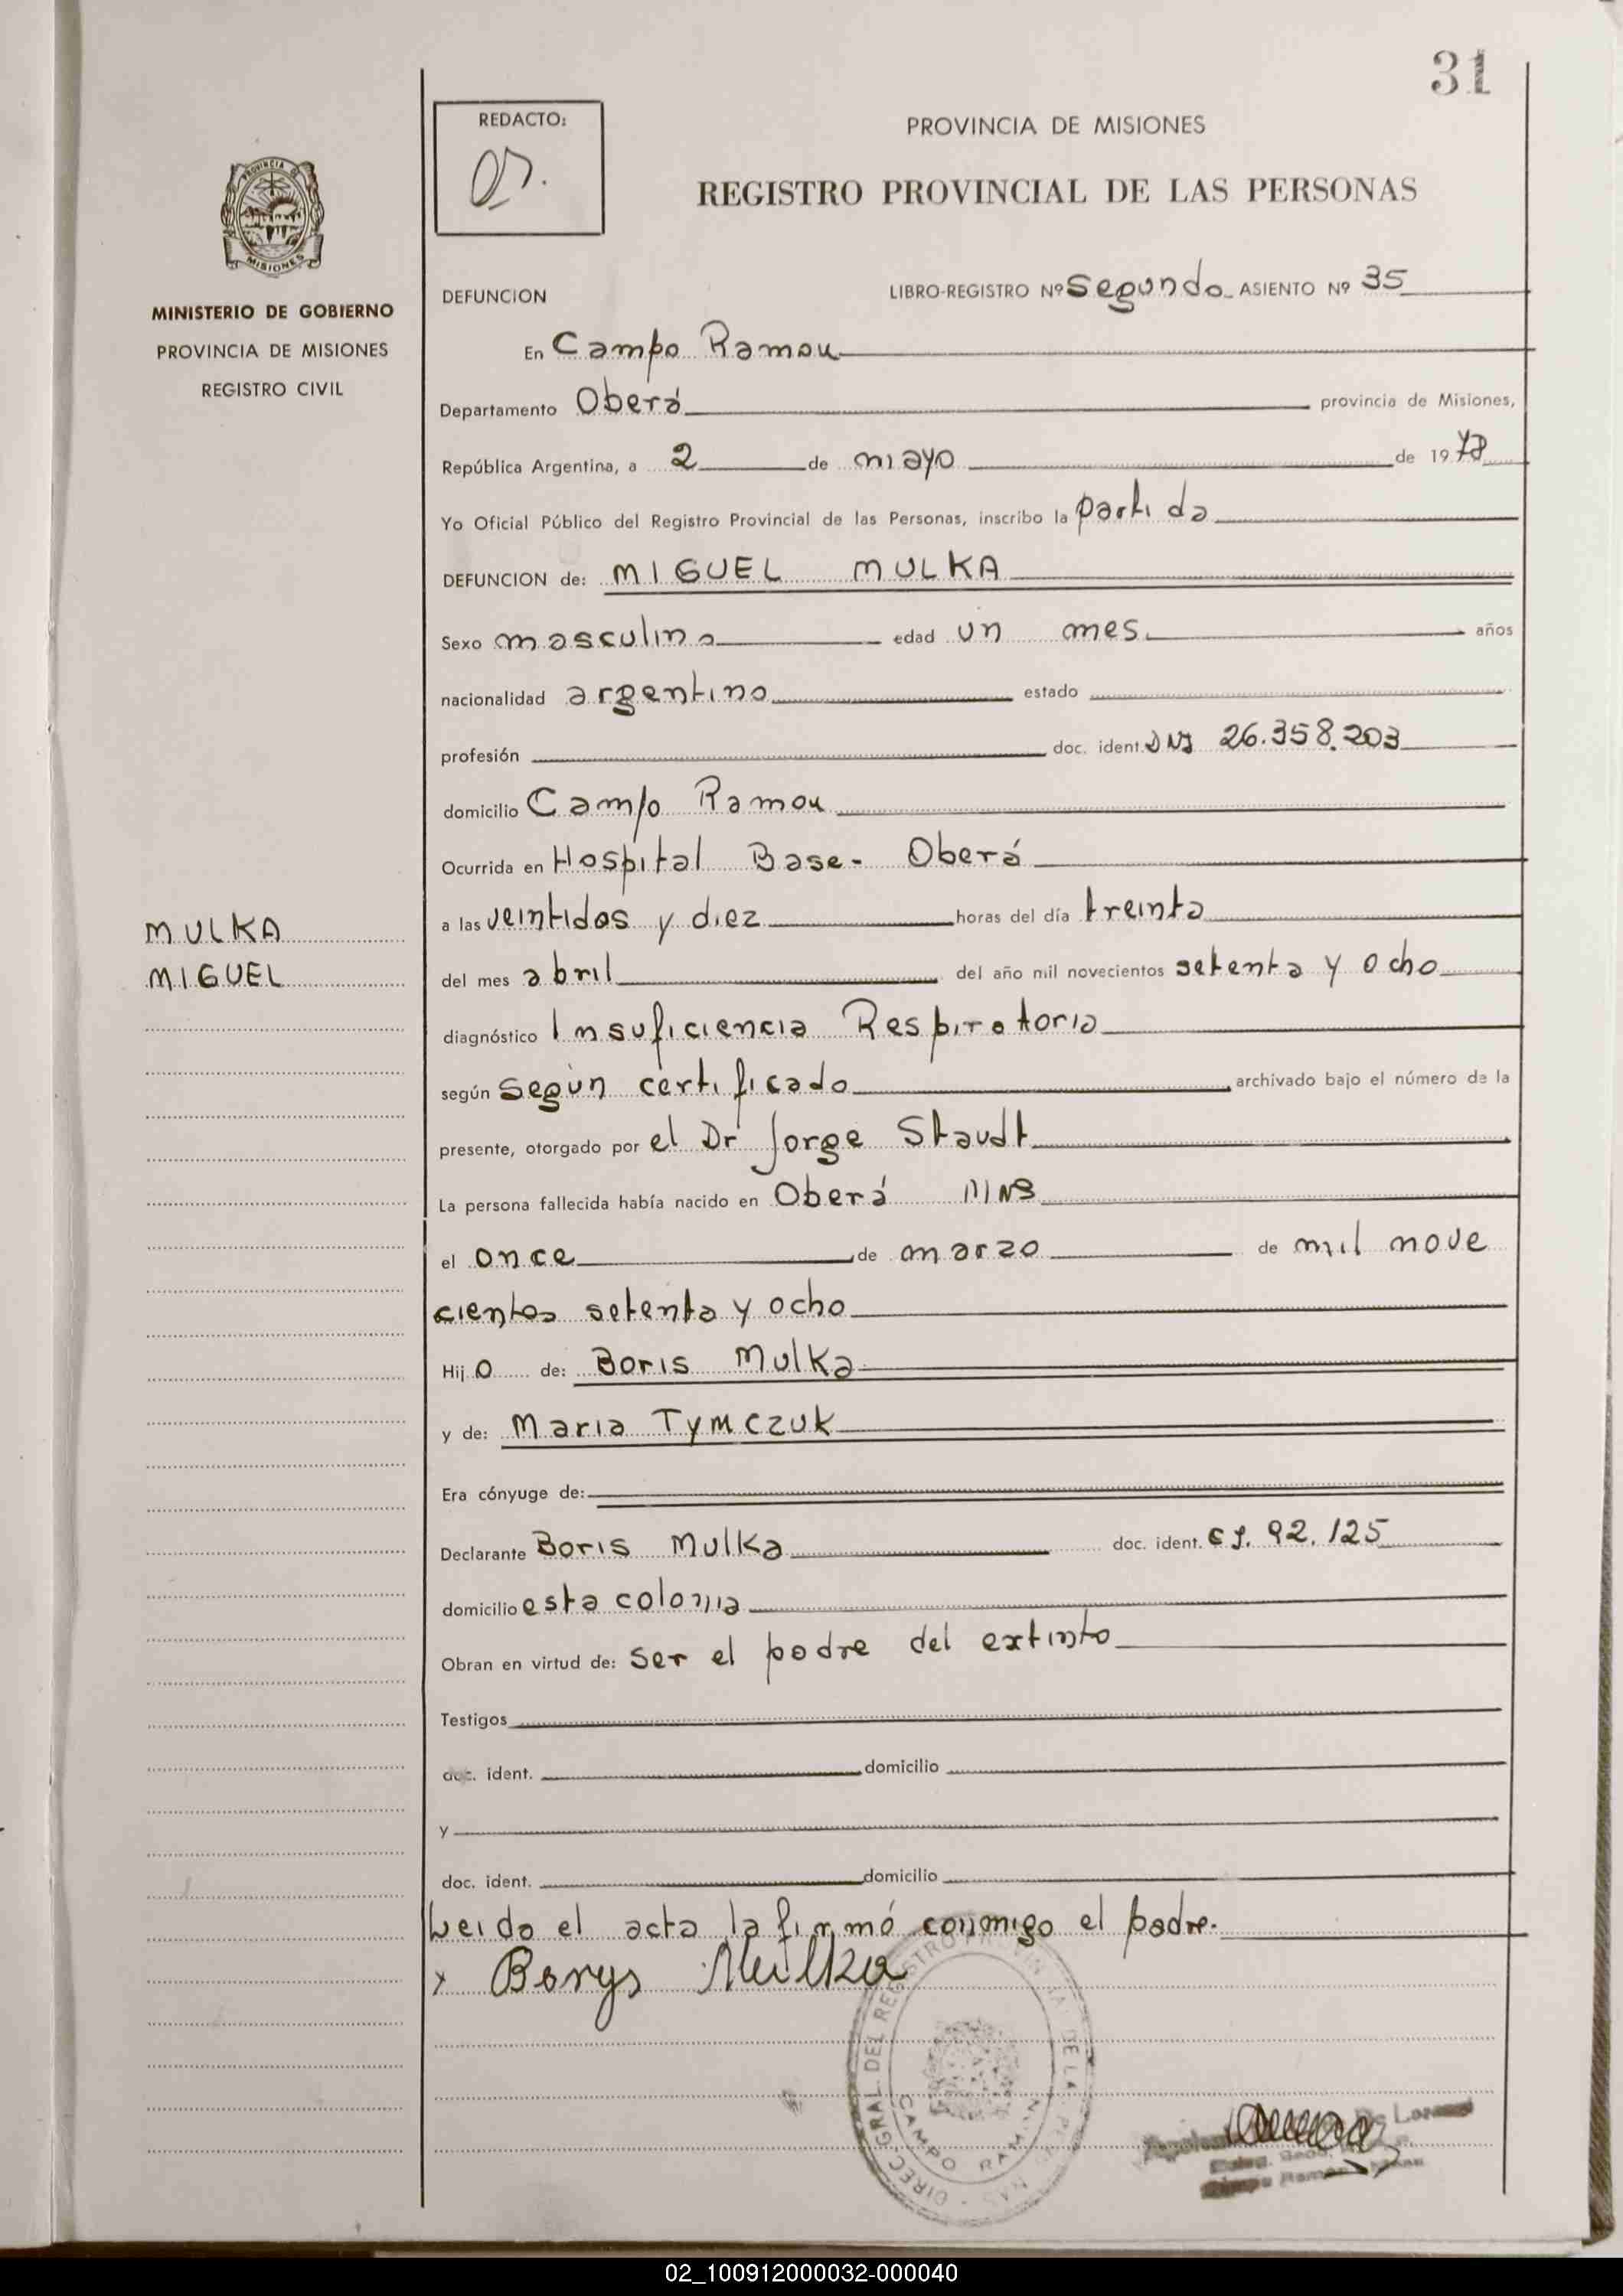 31
REDACTO:
PROVINCIA DE MISIONES
REGISTRO PROVINCIAL DE LAS PERSONAS
PROVINCIA
MISIONES
MINISTERIO DE GOBIERNO
PROVINCIA DE MISIONES
REGISTRO CIVIL
DEFUNCION LIBRO-REGISTRO Nº Segundo ASIENTO Nº 35
En Campo Ramon
Departamento Oberá provincia de Misiones,
República Argentina, a 2 de mayo de 1978
Yo Oficial Público del Registro Provincial de las Personas, inscribo la partida
DEFUNCION de: MIGUEL MULKA
Sexo masculino edad un mes años
nacionalidad argentino estado
profesión doc. ident. DNI 26.358.203
domicilio Campo Ramon
Ocurrida en Hospital Base - Oberá
MULKA
MIGUEL
a las veintidos y diez horas del día treinta
del mes abril del año mil novecientos setenta y ocho
diagnóstico Insuficiencia Respiratoria
según Según certificado archivado bajo el número de la
presente, otorgado por el Dr Jorge Staudt
La persona fallecida había nacido en Oberá Mns
el once de marzo de mil nove
cientos setenta y ocho
Hijo de: Boris Mulka
y de: Maria Tymczuk
Era cónyuge de:
Declarante Boris Mulka doc. ident. CI. 92.125
domicilio esta colonia
Obran en virtud de: ser el padre del extinto
Testigos
doc. ident. domicilio
y
doc. ident. domicilio
Leido el acta la firmó conmigo el padre.
x Borys Mulka
DIREC. GRAL. DEL REGISTRO PROVINCIAL DE LAS PERSONAS
CAMPO RAMON
02_100912000032-000040